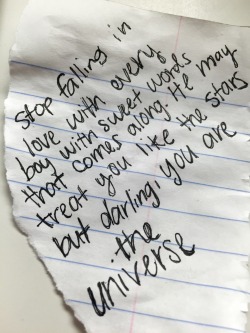 stop falling in
love with every
boy with sweet words
that comes along. He may
treat you like the stars
but darling, you are
the
universe